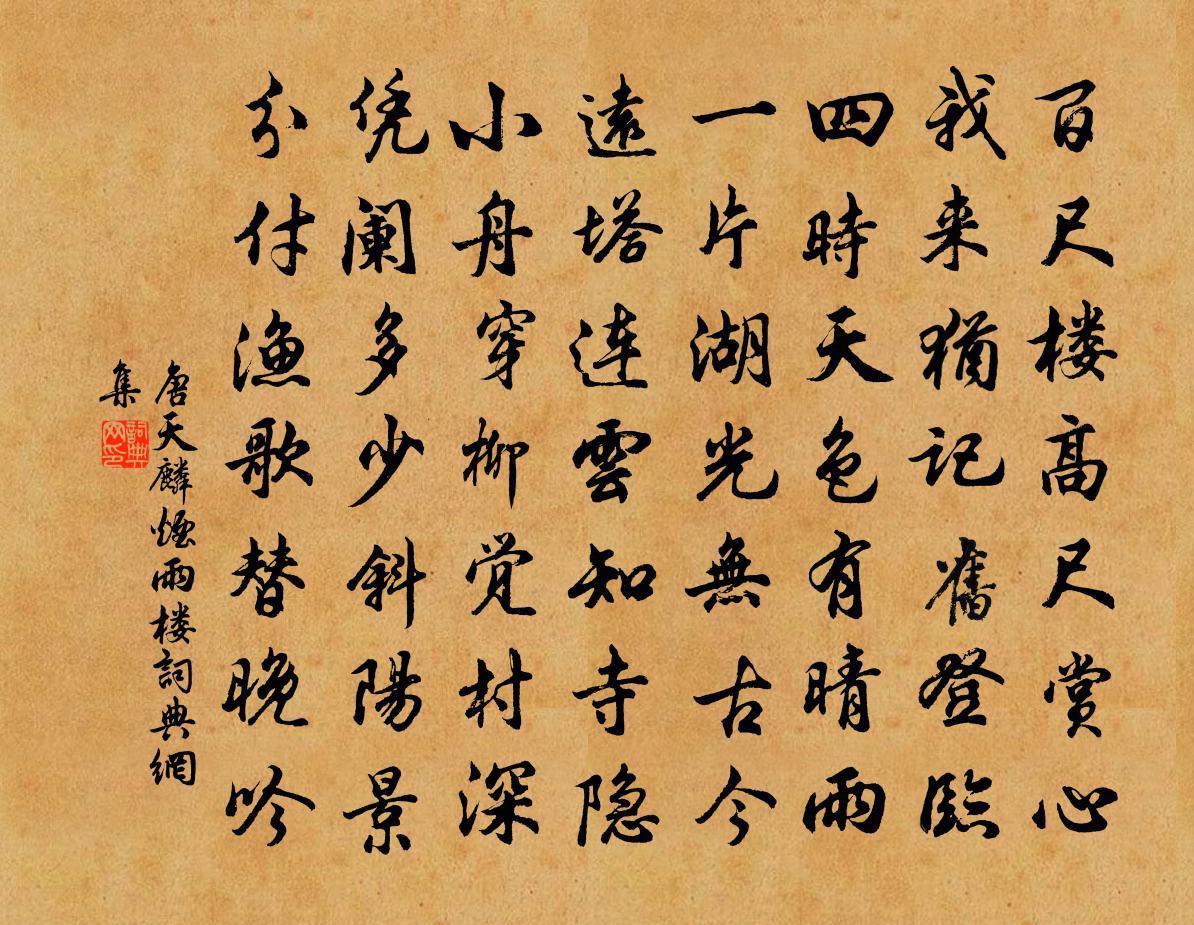 百尺楼高尺赏心
我来猶记舊登臨
四時天色有晴雨
一片湖光無古今
遠塔连雲知寺隐
小舟穿柳觉村深
凭阑多少斜陽景
分付渔歌替晚吟
唐天麟煙雨楼詞典網
集
詞典网印